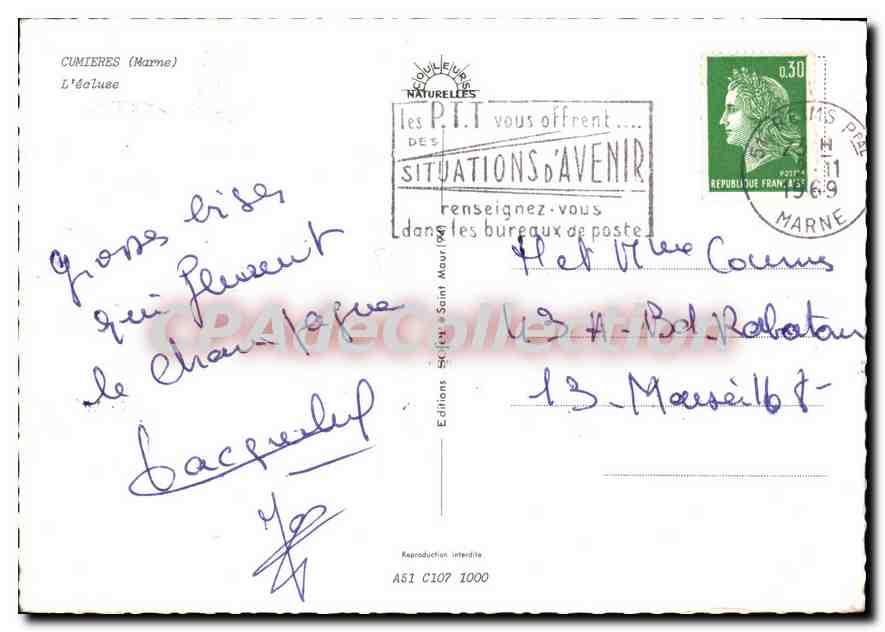 CUMIERES (Marne)
L'écluse
COULEURS
NATURELLES
les P.T.T vous offrent....
DES
SITUATIONS D'AVENIR
renseignez-vous
dans les bureaux de poste
0,30
POSTES
REPUBLIQUE FRANÇAISE
51 REIMS PPAL
H
11
1969
MARNE
grosses bises
qui fleurent
le champagne
Jacqueline
M et Mme
43 A - Bd Rabatau
13 - Marseille 8
Editions Sofer Saint Maur (94)
CPAdeCollection
Reproduction interdite
A51 C107 1000